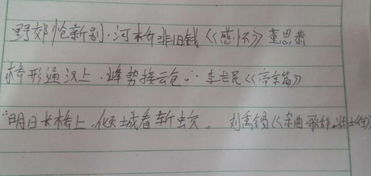 野郊怆新别，河桥非旧饯《感怀》董思恭
桥形通汉上，峰势接云危 李世民《帝京篇》
明日长桥上，倾城看斩蛟。 刘禹锡《杂曲歌辞.壮士行》